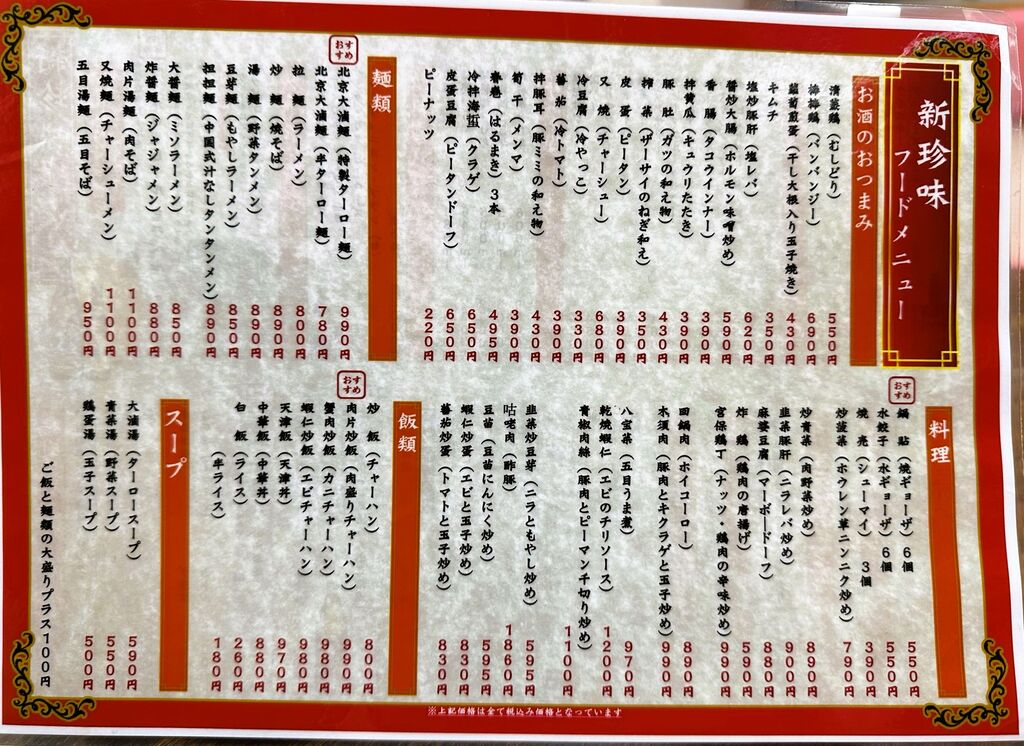 新珍味
フードメニュー
お酒のおつまみ
清蒸鶏(むしどり) 550円
棒棒鶏(バンバンジー) 690円
蘿蔔煎蛋(干し大根入り玉子焼き) 430円
キムチ 350円
塩炒豚肝(塩レバ) 620円
醤炒大腸(ホルモン味噌炒め) 590円
香腸(タコウインナー) 390円
拌黄瓜(キュウリたたき) 390円
豚肚(ガツの和え物) 430円
搾菜(ザーサイのねぎ和え) 350円
皮蛋(ピータン) 390円
叉焼(チャーシュー) 680円
冷豆腐(冷やっこ) 330円
蕃茄(冷トマト) 390円
拌豚耳(豚ミミの和え物) 430円
筍干(メンマ) 390円
春巻(はるまき)3本 495円
冷拌海蜇(クラゲ) 650円
皮蛋豆腐(ピータンドーフ) 650円
ピーナッツ 220円
麺類
おすすめ
北京大滷麺(特製ターロー麺) 990円
北京大滷麺(半ターロー麺) 780円
拉麺(ラーメン) 800円
炒麺(焼そば) 890円
湯麺(野菜タンメン) 890円
豆芽麺(もやしラーメン) 850円
担担麺(中国式汁なしタンタンメン) 890円
大醤麺(ミソラーメン) 850円
炸醤麺(ジャジャメン) 880円
肉片湯麺(肉そば) 1100円
叉焼麺(チャーシューメン) 1100円
五目湯麺(五目そば) 950円
料理
おすすめ
鍋貼(焼ギョーザ)6個 550円
水餃子(水ギョーザ)6個 550円
焼売(シューマイ)3個 390円
炒菠菜(ホウレン草ニンニク炒め) 790円
炒青菜(肉野菜炒め) 890円
韮菜豚肝(ニラレバ炒め) 900円
麻婆豆腐(マーボードーフ) 880円
炸鶏(鶏肉の唐揚げ) 590円
宮保鶏丁(ナッツ・鶏肉の辛味炒め) 990円
回鍋肉(ホイコーロー) 890円
木須肉(豚肉とキクラゲと玉子炒め) 990円
八宝菜(五目うま煮) 970円
乾焼蝦仁(エビのチリソース) 1200円
青椒肉絲(豚肉とピーマン千切り炒め) 1100円
韮菜炒豆芽(ニラともやし炒め) 595円
咕咾肉(酢豚) 1860円
豆苗(豆苗にんにく炒め) 595円
蝦仁炒蛋(エビと玉子炒め) 830円
蕃茄炒蛋(トマトと玉子炒め) 830円
飯類
おすすめ
炒飯(チャーハン) 800円
肉片炒飯(肉盛りチャーハン) 990円
蟹肉炒飯(カニチャーハン) 980円
蝦仁炒飯(エビチャーハン) 980円
天津飯(天津丼) 970円
中華飯(中華丼) 880円
白飯(ライス) 260円
(半ライス) 180円
スープ
大滷湯(ターロースープ) 590円
青菜湯(野菜スープ) 550円
鶏蛋湯(玉子スープ) 500円
ご飯と麺類の大盛りプラス100円
※上記価格は全て税込み価格となっています